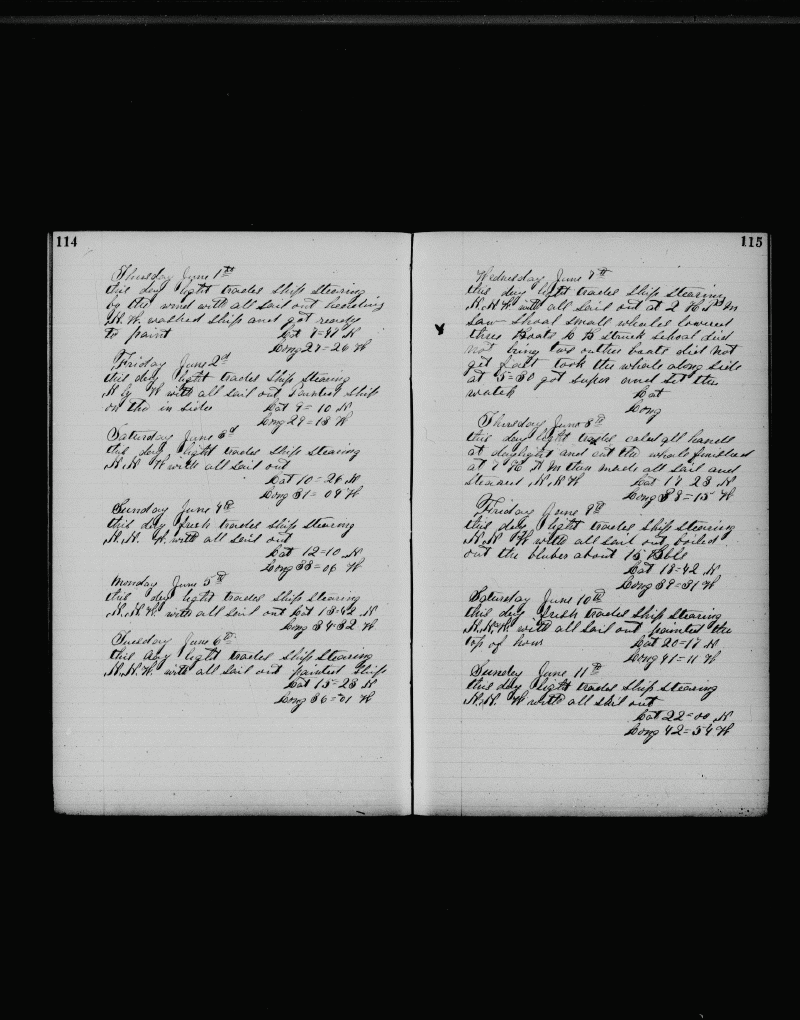 114
Thursday June 1st
this day light trades Ship Stearing
by the wind with all sail out heading
N.W. washed Ship and got ready
to paint Lat 7=47 N
Long 27=26 W
Friday June 2d
this day light trades Ship Stearing
N by W with all sail out Painted Ship
on the in sides Lat 9=10 N
Long 29=18 W
Saturday June 3d
this day light trades Ship Stearing
N.N W with all sail out
Lat 10=26 N
Long 31=09 W
Sunday June 4th
this day fresh trades Ship Stearing
N.N. W. with all sail out
Lat 12=10 N
Long 33=06 W
Monday June 5th
this day light trades Ship Stearing
N.N.W. with all sail out Lat 13=42 N
Long 34=32 W
Tuesday June 6th
this day light trades Ship Stearing
N.N.W. with all sail out painted Ship
Lat 15=23 N
Long 36=01 W
115
Wednesday June 7th
this day light trades Ship Stearing
N.N.W. with all sail out at 2 H P M
Saw Shoal small whales lowered
three Boats L B struck shoal died
not bring two outher boats did not
get fast took the whale along side
at 5=30 got super and set the
watch Lat
Long
Thursday June 8th
this day light trades caled all hands
at daylight and cut the whale finished
at 7 H A M then made all sail and
Steared N.N W Lat 17 23 N
Long 38=15 W
Friday June 9th
this day light trades Ship Stearing
N.N W with all sail out boiled
out the bluber about 15 Bbls
Lat 18=42 N
Long 39=31 W
Saturday June 10th
this day fresh trades Ship Stearing
N.N.W. with all sail out painted the
top of hous Lat 20=17 N
Long 41=11 W
Sunday June 11th
this day light trades Ship Stearing
N.N. W with all sail out
Lat 22=00 N
Long 42=54 W